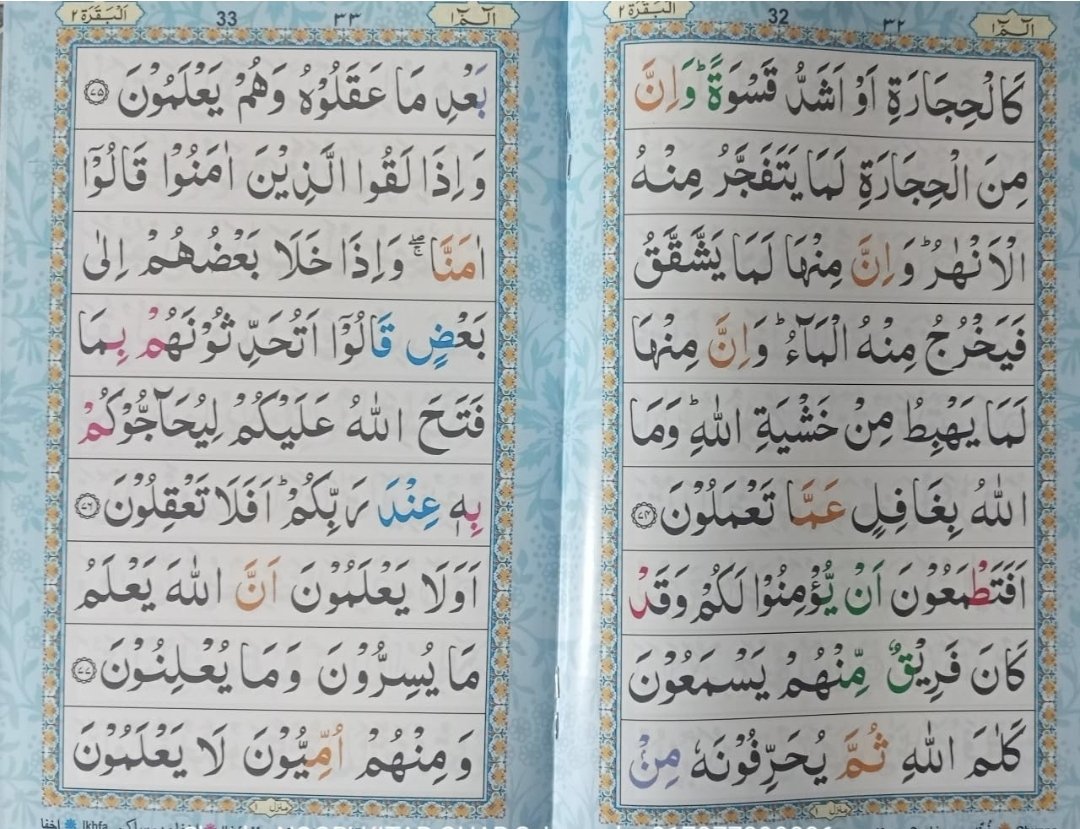 الٓـمّٓ ١
٣٢
32
اَلْبَقَرَة ٢
كَالْحِجَارَةِ اَوْ اَشَدُّ قَسْوَةً ؕ وَاِنَّ
مِنَ الْحِجَارَةِ لَمَا يَتَفَجَّرُ مِنْهُ
الْاَنْهٰرُ ؕ وَاِنَّ مِنْهَا لَمَا يَشَّقَّقُ
فَيَخْرُجُ مِنْهُ الْمَآءُ ؕ وَاِنَّ مِنْهَا
لَمَا يَهْبِطُ مِنْ خَشْيَةِ اللّٰهِ ؕ وَمَا
اللّٰهُ بِغَافِلٍ عَمَّا تَعْمَلُوْنَ ۝٧٤
اَفَتَطْمَعُوْنَ اَنْ يُّؤْمِنُوْا لَكُمْ وَقَدْ
كَانَ فَرِيْقٌ مِّنْهُمْ يَسْمَعُوْنَ
كَلٰمَ اللّٰهِ ثُمَّ يُحَرِّفُوْنَهٗ مِنْۢ
منزل ١
الٓـمّٓ ١
٣٣
33
اَلْبَقَرَة ٢
بَعْدِ مَا عَقَلُوْهُ وَهُمْ يَعْلَمُوْنَ ۝٧٥
وَاِذَا لَقُوا الَّذِيْنَ اٰمَنُوْا قَالُوْٓا
اٰمَنَّا ۖۚ وَاِذَا خَلَا بَعْضُهُمْ اِلٰى
بَعْضٍ قَالُوْٓا اَتُحَدِّثُوْنَهُمْ بِمَا
فَتَحَ اللّٰهُ عَلَيْكُمْ لِيُحَآجُّوْكُمْ
بِهٖ عِنْدَ رَبِّكُمْ ؕ اَفَلَا تَعْقِلُوْنَ ۝٧٦
اَوَلَا يَعْلَمُوْنَ اَنَّ اللّٰهَ يَعْلَمُ
مَا يُسِرُّوْنَ وَمَا يُعْلِنُوْنَ ۝٧٧
وَمِنْهُمْ اُمِّيُّوْنَ لَا يَعْلَمُوْنَ
منزل ١
Ikhfa اخفا